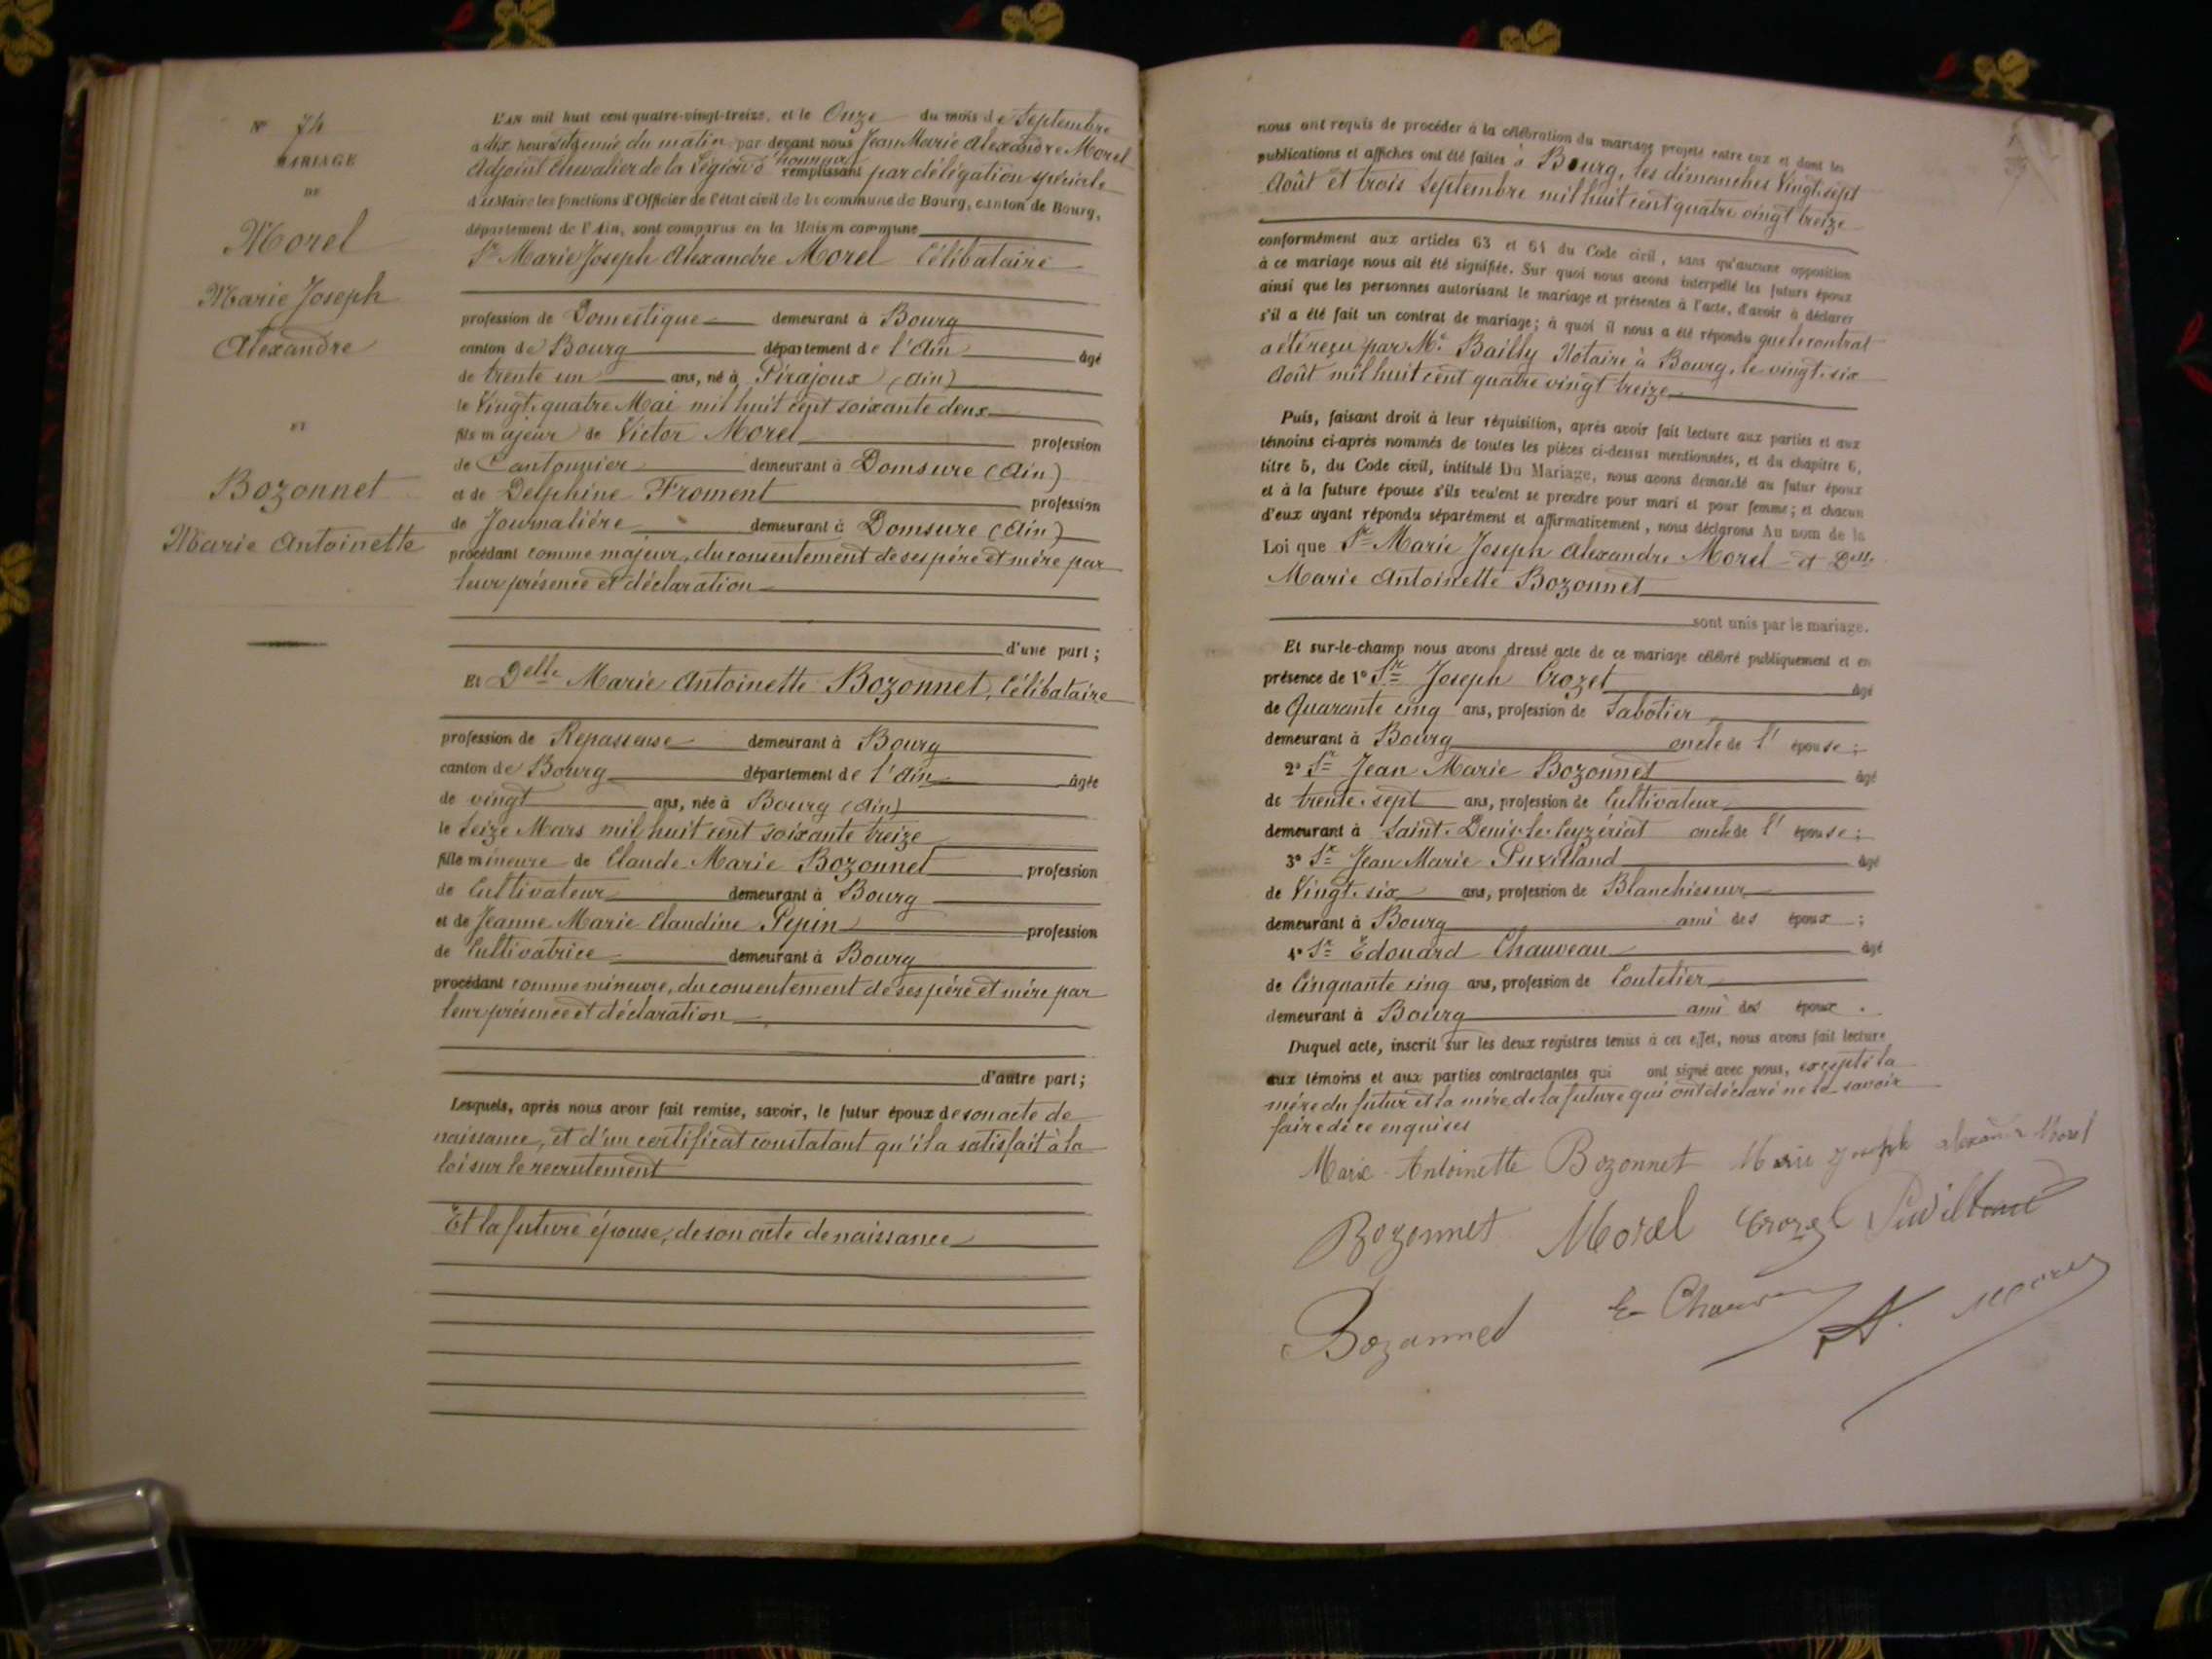 N° 74
MARIAGE
DE
Morel
Marie Joseph
Alexandre
ET
Bozonnet
Marie Antoinette
L'AN mil huit cent quatre-vingt-treize, et le Onze du mois de Septembre
à dix heures et demie du matin par devant nous Jean Marie Alexandre Morel
Adjoint Chevalier de la Légion d'honneur remplissant par délégation spéciale
du Maire les fonctions d'Officier de l'état civil de la commune de Bourg, canton de Bourg,
département de l'Ain, sont comparus en la Maison commune
Sr Marie Joseph Alexandre Morel Célibataire
profession de Domestique demeurant à Bourg
canton de Bourg département de l'Ain âgé
de trente un ans, né à Pirajoux (Ain)
le Vingt-quatre Mai mil huit cent soixante deux
fils majeur de Victor Morel profession
de Cantonnier demeurant à Domsure (Ain)
et de Delphine Froment profession
de Journalière demeurant à Domsure (Ain)
procédant comme majeur, du consentement de ses père et mère par
leur présence et déclaration
d'une part ;
Et Delle Marie Antoinette Bozonnet, Célibataire
profession de Repasseuse demeurant à Bourg
canton de Bourg département de l'Ain âgée
de vingt ans, née à Bourg (Ain)
le Seize Mars mil huit cent soixante treize
fille mineure de Claude Marie Bozonnet profession
de Cultivateur demeurant à Bourg
et de Jeanne Marie Claudine Pepin profession
de Cultivatrice demeurant à Bourg
procédant comme mineure, du consentement de ses père et mère par
leur présence et déclaration
d'autre part ;
Lesquels, après nous avoir fait remise, savoir, le futur époux de son acte de
naissance, et d'un certificat constatant qu'il a satisfait à la
loi sur le recrutement
Et la future épouse, de son acte de naissance
nous ont requis de procéder à la célébration du mariage projeté entre eux et dont les
publications et affiches ont été faites à Bourg, les dimanches Vingt-sept
Août et trois Septembre mil huit cent quatre vingt treize
conformément aux articles 63 et 64 du Code civil, sans qu'aucune opposition
à ce mariage nous ait été signifiée. Sur quoi nous avons interpellé les futurs époux
ainsi que les personnes autorisant le mariage et présentes à l'acte, d'avoir à déclarer
s'il a été fait un contrat de mariage ; à quoi il nous a été répondu que le contrat
a été reçu par Me Bailly Notaire à Bourg, le vingt-six
Août mil huit cent quatre vingt treize
Puis, faisant droit à leur réquisition, après avoir fait lecture aux parties et aux
témoins ci-après nommés de toutes les pièces ci-dessus mentionnées, et du chapitre 6,
titre 5, du Code civil, intitulé Du Mariage, nous avons demandé au futur époux
et à la future épouse s'ils veulent se prendre pour mari et pour femme ; et chacun
d'eux ayant répondu séparément et affirmativement, nous déclarons Au nom de la
Loi que Sr Marie Joseph Alexandre Morel et Delle
Marie Antoinette Bozonnet
sont unis par le mariage.
Et sur-le-champ nous avons dressé acte de ce mariage célébré publiquement et en
présence de 1° Sr Joseph Crozet âgé
de Quarante cinq ans, profession de Sabotier
demeurant à Bourg oncle de l'épouse ;
2° Sr Jean Marie Bozonnet âgé
de trente-sept ans, profession de Cultivateur
demeurant à Saint-Denis-le-Ceyzériat oncle de l'épouse ;
3° Sr Jean Marie Puvilland âgé
de Vingt-six ans, profession de Blanchisseur
demeurant à Bourg ami des époux ;
4° Sr Edouard Chauveau âgé
de Cinquante cinq ans, profession de Coutelier
demeurant à Bourg ami des époux .
Duquel acte, inscrit sur les deux registres tenus à cet effet, nous avons fait lecture
aux témoins et aux parties contractantes qui ont signé avec nous, excepté la
mère du futur et la mère de la future qui ont déclaré ne le savoir
faire de ce enquises
Marie Antoinette Bozonnet Marie Joseph alexandre Morel
Bozonnet Morel Crozet Puvilland
Bozonnet E Chauveau A. Morel